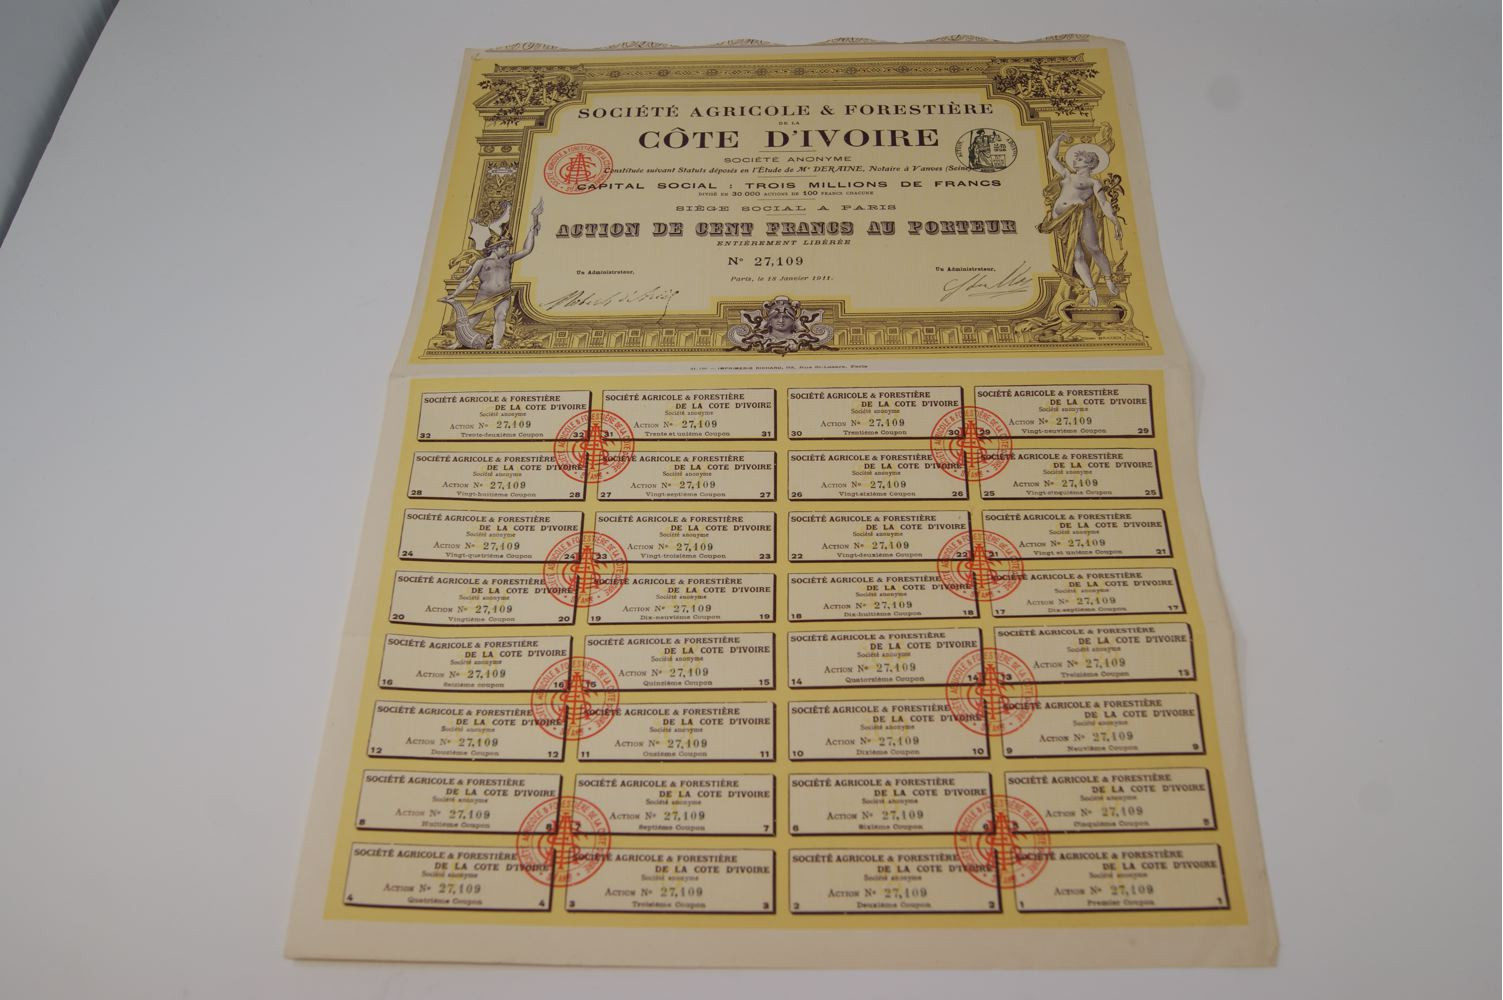 SOCIÉTÉ AGRICOLE & FORESTIÈRE
DE LA
CÔTE D'IVOIRE
SOCIÉTÉ ANONYME
Constituée suivant Statuts déposés en l'Étude de Me DERAINE, Notaire à Vanves (Seine)
CAPITAL SOCIAL : TROIS MILLIONS DE FRANCS
DIVISÉ EN 30.000 ACTIONS DE 100 FRANCS CHACUNE
SIÈGE SOCIAL A PARIS
ACTION DE CENT FRANCS AU PORTEUR
ENTIÈREMENT LIBÉRÉE
No 27,109
Paris, le 18 Janvier 1911.
Un Administrateur, Un Administrateur,
IMPRIMERIE RICHARD, Rue St-Lazare, Paris
SOCIÉTÉ AGRICOLE & FORESTIÈRE
DE LA COTE D'IVOIRE
Société anonyme
Action No 27,109
32 Trente-deuxième Coupon 32
SOCIÉTÉ AGRICOLE & FORESTIÈRE
DE LA COTE D'IVOIRE
Société anonyme
Action No 27,109
31 Trente et unième Coupon 31
SOCIÉTÉ AGRICOLE & FORESTIÈRE
DE LA COTE D'IVOIRE
Société anonyme
Action No 27,109
30 Trentième Coupon 30
SOCIÉTÉ AGRICOLE & FORESTIÈRE
DE LA COTE D'IVOIRE
Société anonyme
Action No 27,109
29 Vingt-neuvième Coupon 29
SOCIÉTÉ AGRICOLE & FORESTIÈRE
DE LA COTE D'IVOIRE
Société anonyme
Action No 27,109
28 Vingt-huitième Coupon 28
SOCIÉTÉ AGRICOLE & FORESTIÈRE
DE LA COTE D'IVOIRE
Société anonyme
Action No 27,109
27 Vingt-septième Coupon 27
SOCIÉTÉ AGRICOLE & FORESTIÈRE
DE LA COTE D'IVOIRE
Société anonyme
Action No 27,109
26 Vingt-sixième Coupon 26
SOCIÉTÉ AGRICOLE & FORESTIÈRE
DE LA COTE D'IVOIRE
Société anonyme
Action No 27,109
25 Vingt-cinquième Coupon 25
SOCIÉTÉ AGRICOLE & FORESTIÈRE
DE LA COTE D'IVOIRE
Société anonyme
Action No 27,109
24 Vingt-quatrième Coupon 24
SOCIÉTÉ AGRICOLE & FORESTIÈRE
DE LA COTE D'IVOIRE
Société anonyme
Action No 27,109
23 Vingt-troisième Coupon 23
SOCIÉTÉ AGRICOLE & FORESTIÈRE
DE LA COTE D'IVOIRE
Société anonyme
Action No 27,109
22 Vingt-deuxième Coupon 22
SOCIÉTÉ AGRICOLE & FORESTIÈRE
DE LA COTE D'IVOIRE
Société anonyme
Action No 27,109
21 Vingt et unième Coupon 21
SOCIÉTÉ AGRICOLE & FORESTIÈRE
DE LA COTE D'IVOIRE
Société anonyme
Action No 27,109
20 Vingtième Coupon 20
SOCIÉTÉ AGRICOLE & FORESTIÈRE
DE LA COTE D'IVOIRE
Société anonyme
Action No 27,109
19 Dix-neuvième Coupon 19
SOCIÉTÉ AGRICOLE & FORESTIÈRE
DE LA COTE D'IVOIRE
Société anonyme
Action No 27,109
18 Dix-huitième Coupon 18
SOCIÉTÉ AGRICOLE & FORESTIÈRE
DE LA COTE D'IVOIRE
Société anonyme
Action No 27,109
17 Dix-septième Coupon 17
SOCIÉTÉ AGRICOLE & FORESTIÈRE
DE LA COTE D'IVOIRE
Société anonyme
Action No 27,109
16 Seizième Coupon 16
SOCIÉTÉ AGRICOLE & FORESTIÈRE
DE LA COTE D'IVOIRE
Société anonyme
Action No 27,109
15 Quinzième Coupon 15
SOCIÉTÉ AGRICOLE & FORESTIÈRE
DE LA COTE D'IVOIRE
Société anonyme
Action No 27,109
14 Quatorzième Coupon 14
SOCIÉTÉ AGRICOLE & FORESTIÈRE
DE LA COTE D'IVOIRE
Société anonyme
Action No 27,109
13 Treizième Coupon 13
SOCIÉTÉ AGRICOLE & FORESTIÈRE
DE LA COTE D'IVOIRE
Société anonyme
Action No 27,109
12 Douzième Coupon 12
SOCIÉTÉ AGRICOLE & FORESTIÈRE
DE LA COTE D'IVOIRE
Société anonyme
Action No 27,109
11 Onzième Coupon 11
SOCIÉTÉ AGRICOLE & FORESTIÈRE
DE LA COTE D'IVOIRE
Société anonyme
Action No 27,109
10 Dixième Coupon 10
SOCIÉTÉ AGRICOLE & FORESTIÈRE
DE LA COTE D'IVOIRE
Société anonyme
Action No 27,109
9 Neuvième Coupon 9
SOCIÉTÉ AGRICOLE & FORESTIÈRE
DE LA COTE D'IVOIRE
Société anonyme
Action No 27,109
8 Huitième Coupon 8
SOCIÉTÉ AGRICOLE & FORESTIÈRE
DE LA COTE D'IVOIRE
Société anonyme
Action No 27,109
7 Septième Coupon 7
SOCIÉTÉ AGRICOLE & FORESTIÈRE
DE LA COTE D'IVOIRE
Société anonyme
Action No 27,109
6 Sixième Coupon 6
SOCIÉTÉ AGRICOLE & FORESTIÈRE
DE LA COTE D'IVOIRE
Société anonyme
Action No 27,109
5 Cinquième Coupon 5
SOCIÉTÉ AGRICOLE & FORESTIÈRE
DE LA COTE D'IVOIRE
Société anonyme
Action No 27,109
4 Quatrième Coupon 4
SOCIÉTÉ AGRICOLE & FORESTIÈRE
DE LA COTE D'IVOIRE
Société anonyme
Action No 27,109
3 Troisième Coupon 3
SOCIÉTÉ AGRICOLE & FORESTIÈRE
DE LA COTE D'IVOIRE
Société anonyme
Action No 27,109
2 Deuxième Coupon 2
SOCIÉTÉ AGRICOLE & FORESTIÈRE
DE LA COTE D'IVOIRE
Société anonyme
Action No 27,109
1 Premier Coupon 1